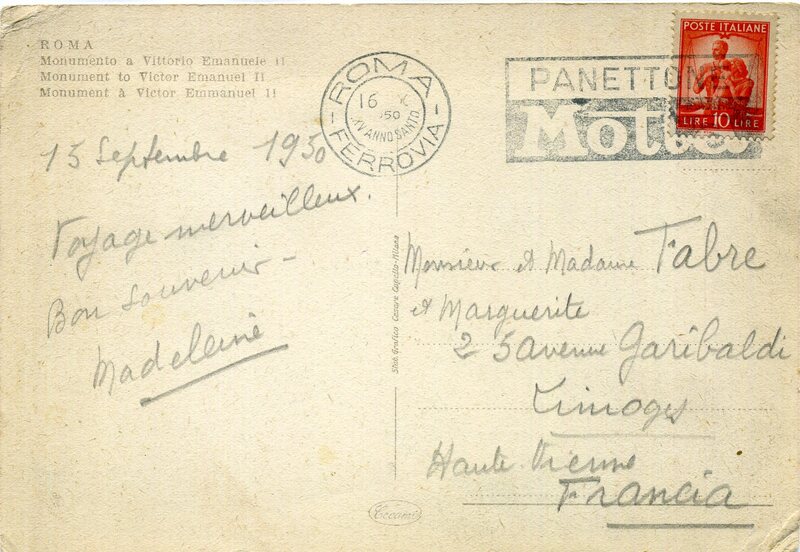 ROMA
Monumento a Vittorio Emanuele II
Monument to Victor Emanuel II
Monument à Victor Emmanuel II
ROMA FERROVIA
16 X
1950
XXV ANNO SANTO
PANETTONE
Motta
POSTE ITALIANE
LIRE 10 LIRE
15 Septembre 1950
Voyage merveilleux.
Bon souvenir -
Madeleine
Stab. Grafico Cesare Capello - Milano
Monsieur et Madame Fabre
et Marguerite
25 avenue Garibaldi
Limoges
Haute-Vienne
Francia